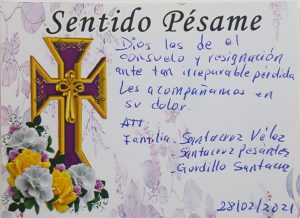 Sentido Pésame
Dios les de el
consuelo y resignación
ante tan irreparable pérdida
Les acompañamos en
su dolor.
Att
Familia. Santacruz Vélez
Santacruz Pesantes
Gordillo Santacruz
28/02/2021